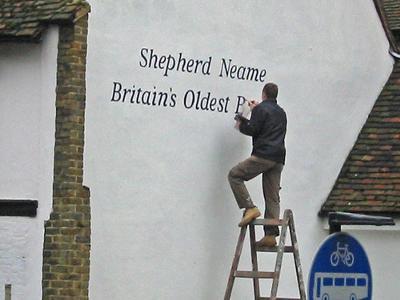 Shepherd Neame
Britain's Oldest B